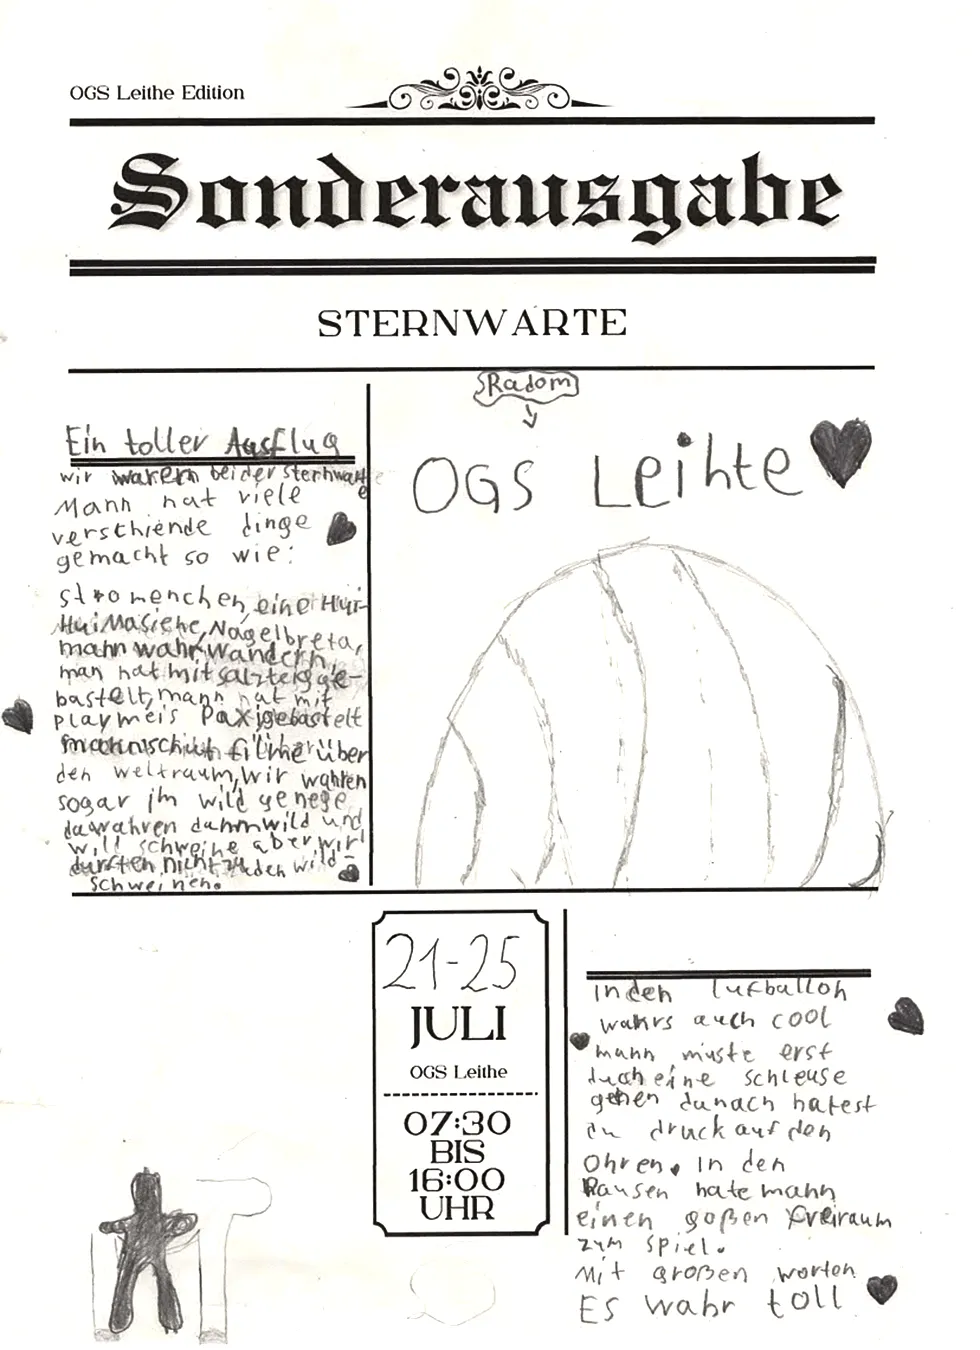 OGS Leithe Edition
Sonderausgabe
STERNWARTE
Ein toller Ausflug
wir waren bei der Sternwarte
Mann hat viele
verschiende dinge
gemacht so wie:
stromenchen, eine Hui-
Hui Masiehe, Nagelbreta,
mahn wahr wandern,
man hat mit salzteig ge-
bastelt, mann hat mit
playmeis Paxi gebastelt
filme über
den weltraum, wir wahren
sogar im wild genege
da wahren dahmwild und
will schweine aber wir
durften nicht zu den wild-
schweinen.
Radom
OGS Leihte
21-25
JULI
OGS Leithe
07:30
BIS
16:00
UHR
in den lufballoh
wahrs auch cool
mann muste erst
duch eine schleuse
gehen danach hatest
du druck auf den
Ohren. In den
Pausen hate mann
einen goßen freiraum
zum spiel.
Mit großen worten
Es wahr toll